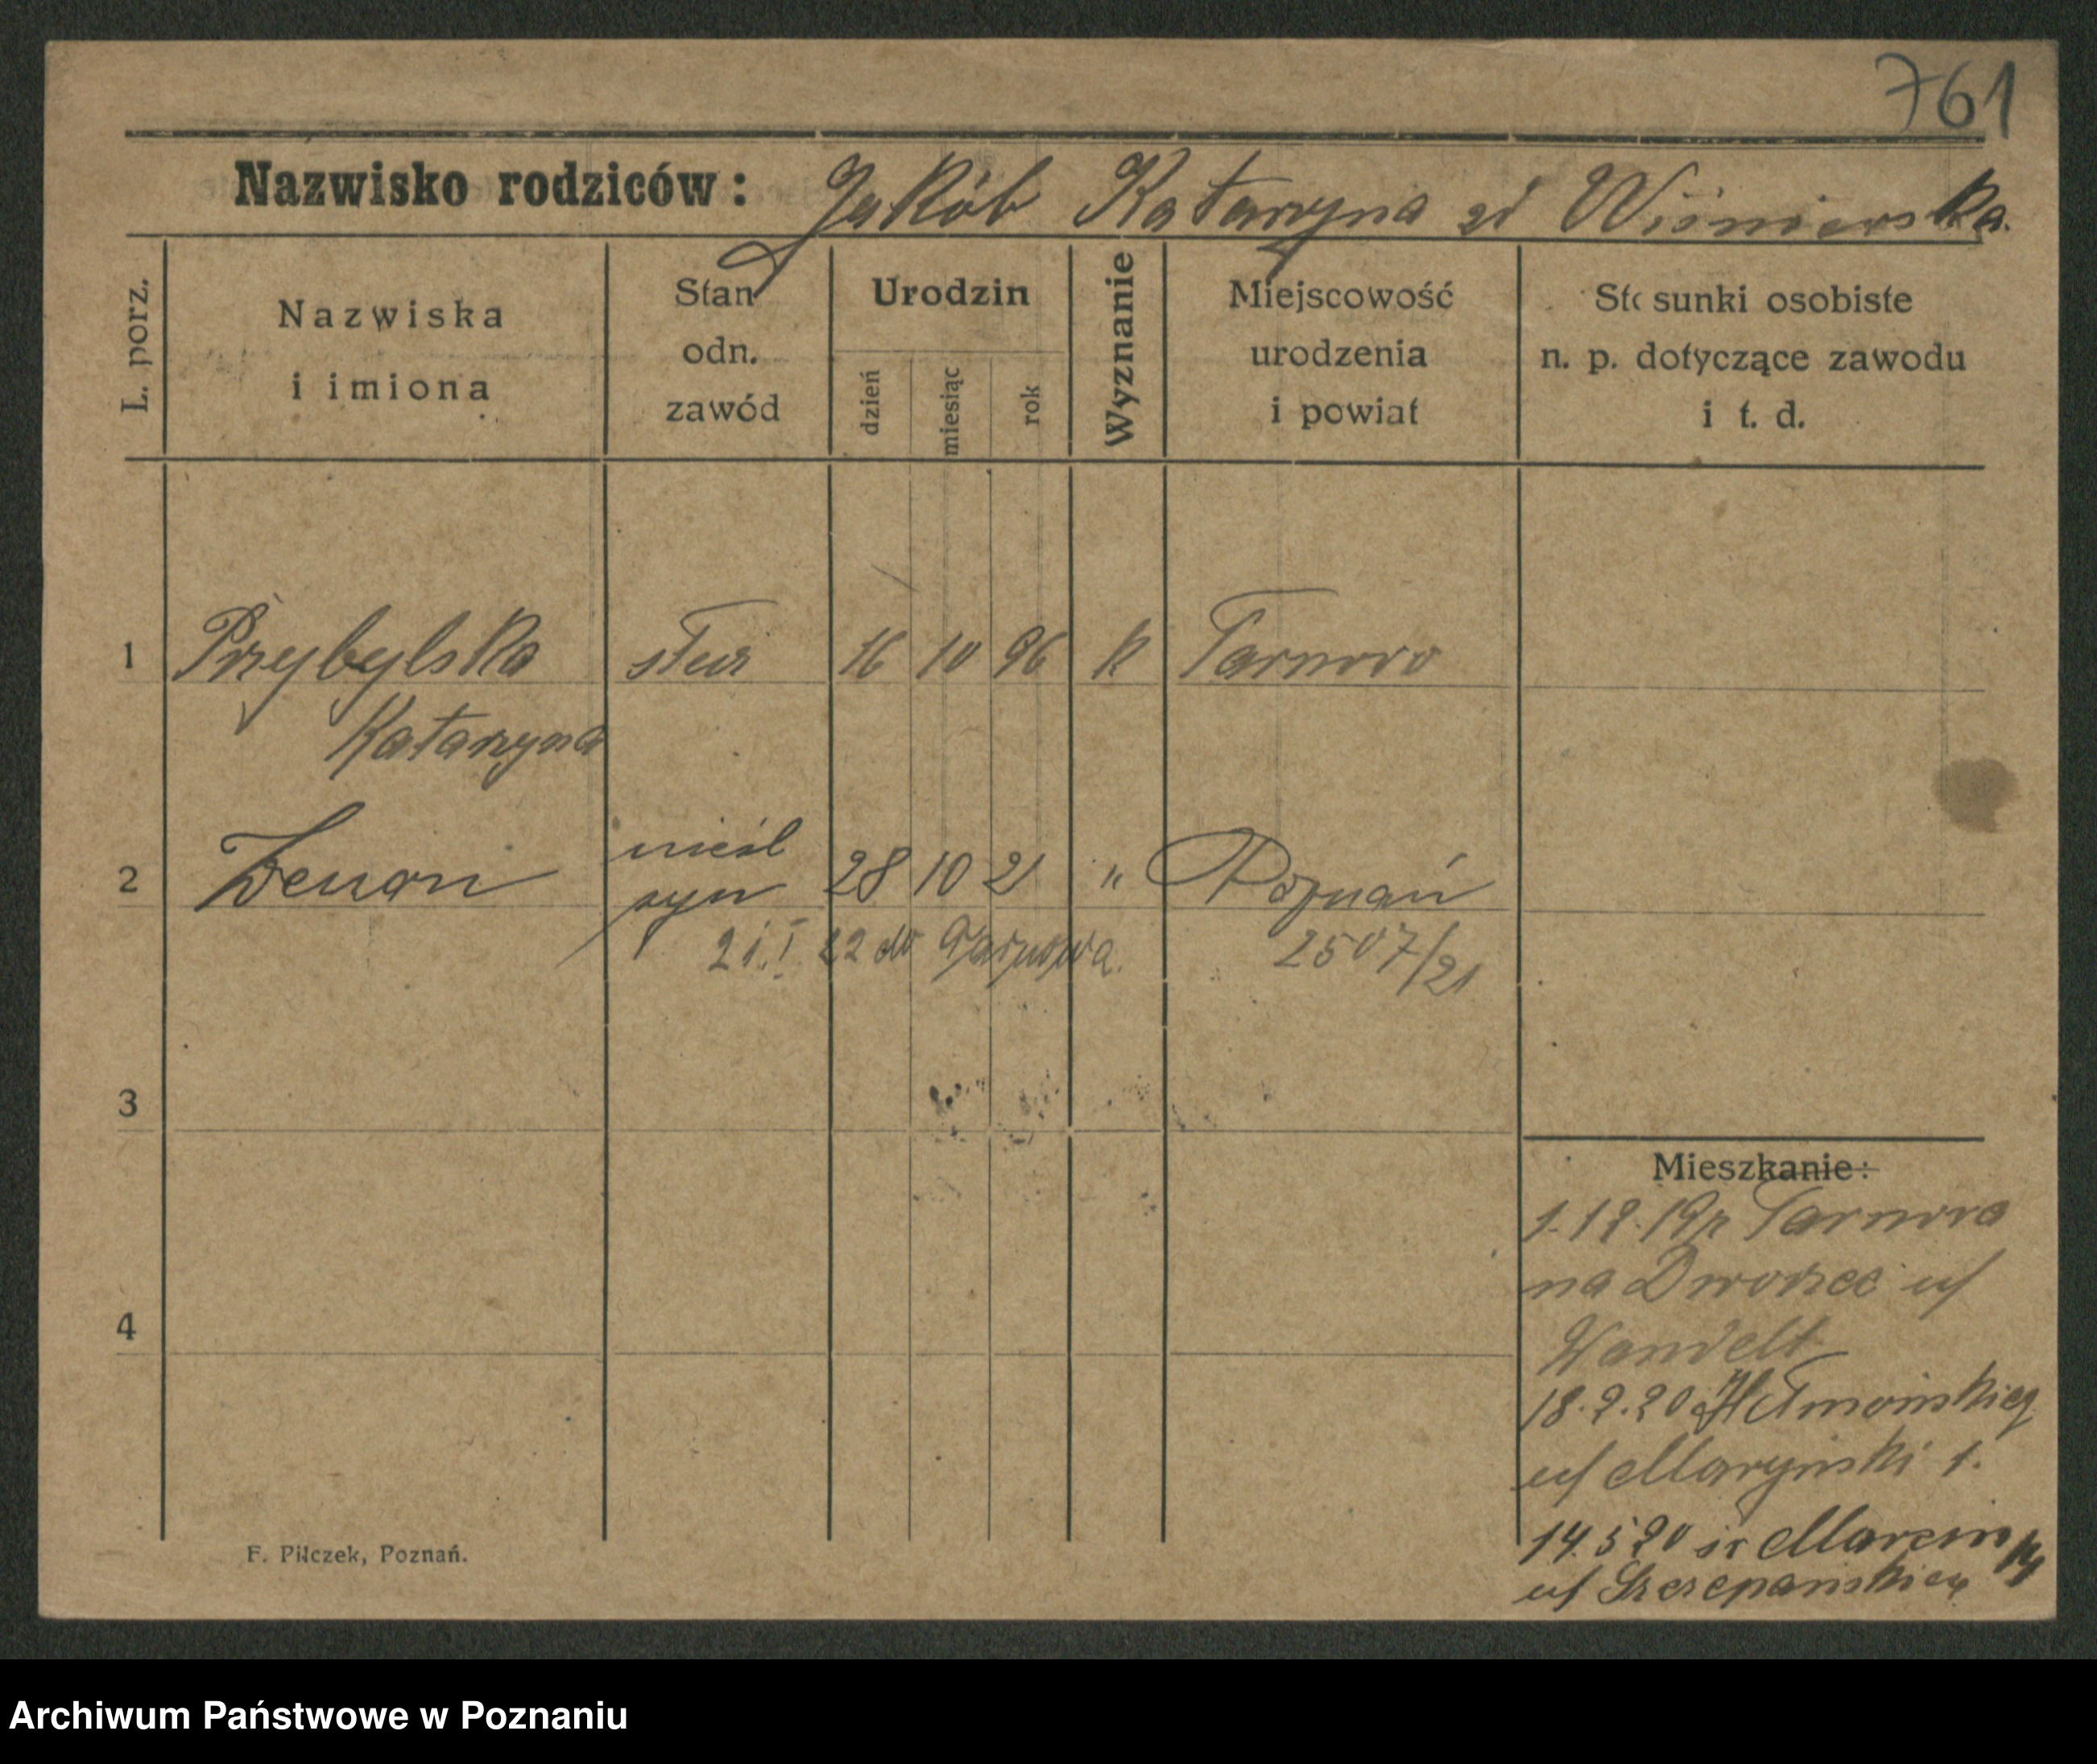 761
Nazwisko rodziców: Jakób Katarzyna zd Wiśniewska.
L. porz.
Nazwiska
i imiona
Stan
odn.
zawód
Urodzin
dzień
miesiąc
rok
Wyznanie
Miejscowość
urodzenia
i powiat
Stosunki osobiste
n. p. dotyczące zawodu
i t. d.
1 Przybylska służ 16 10 96 k Tarnowo
Katarzyna
2 Zenon nieśl 28 10 21 " Poznań
syn
21.I 22 do Tarnowa. 2507/21
3
Mieszkanie:
1.12.19 z Tarnowa
na Dworzec u/
Wandelt
18.2.20
u/ Maryński 1.
4
14.5 20 św Marcin
u/ Szczepański
F. Pilczek, Poznań.
Archiwum Państwowe w Poznaniu